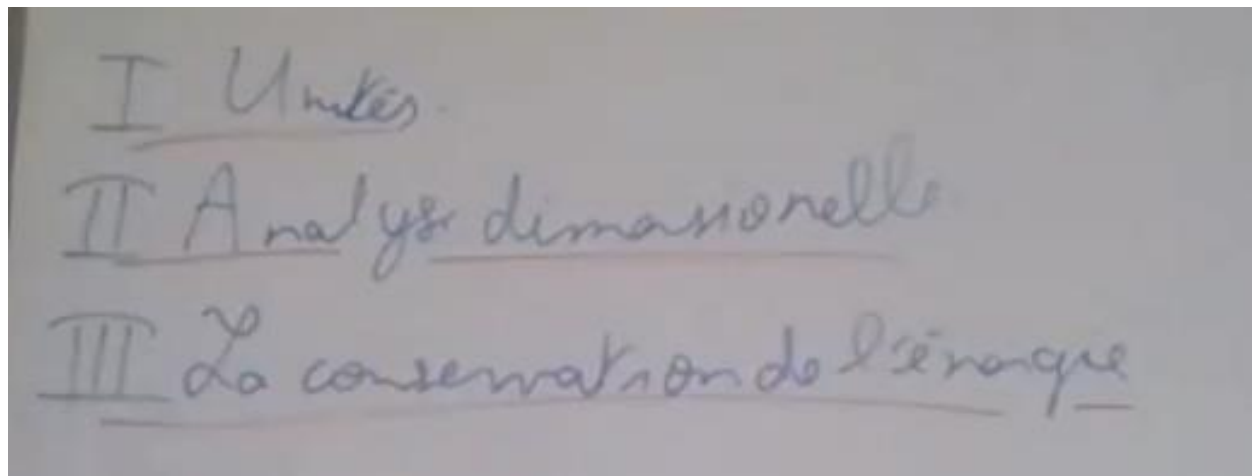 I Unités
II Analyse dimensionelle
III La conservation de l'énergie